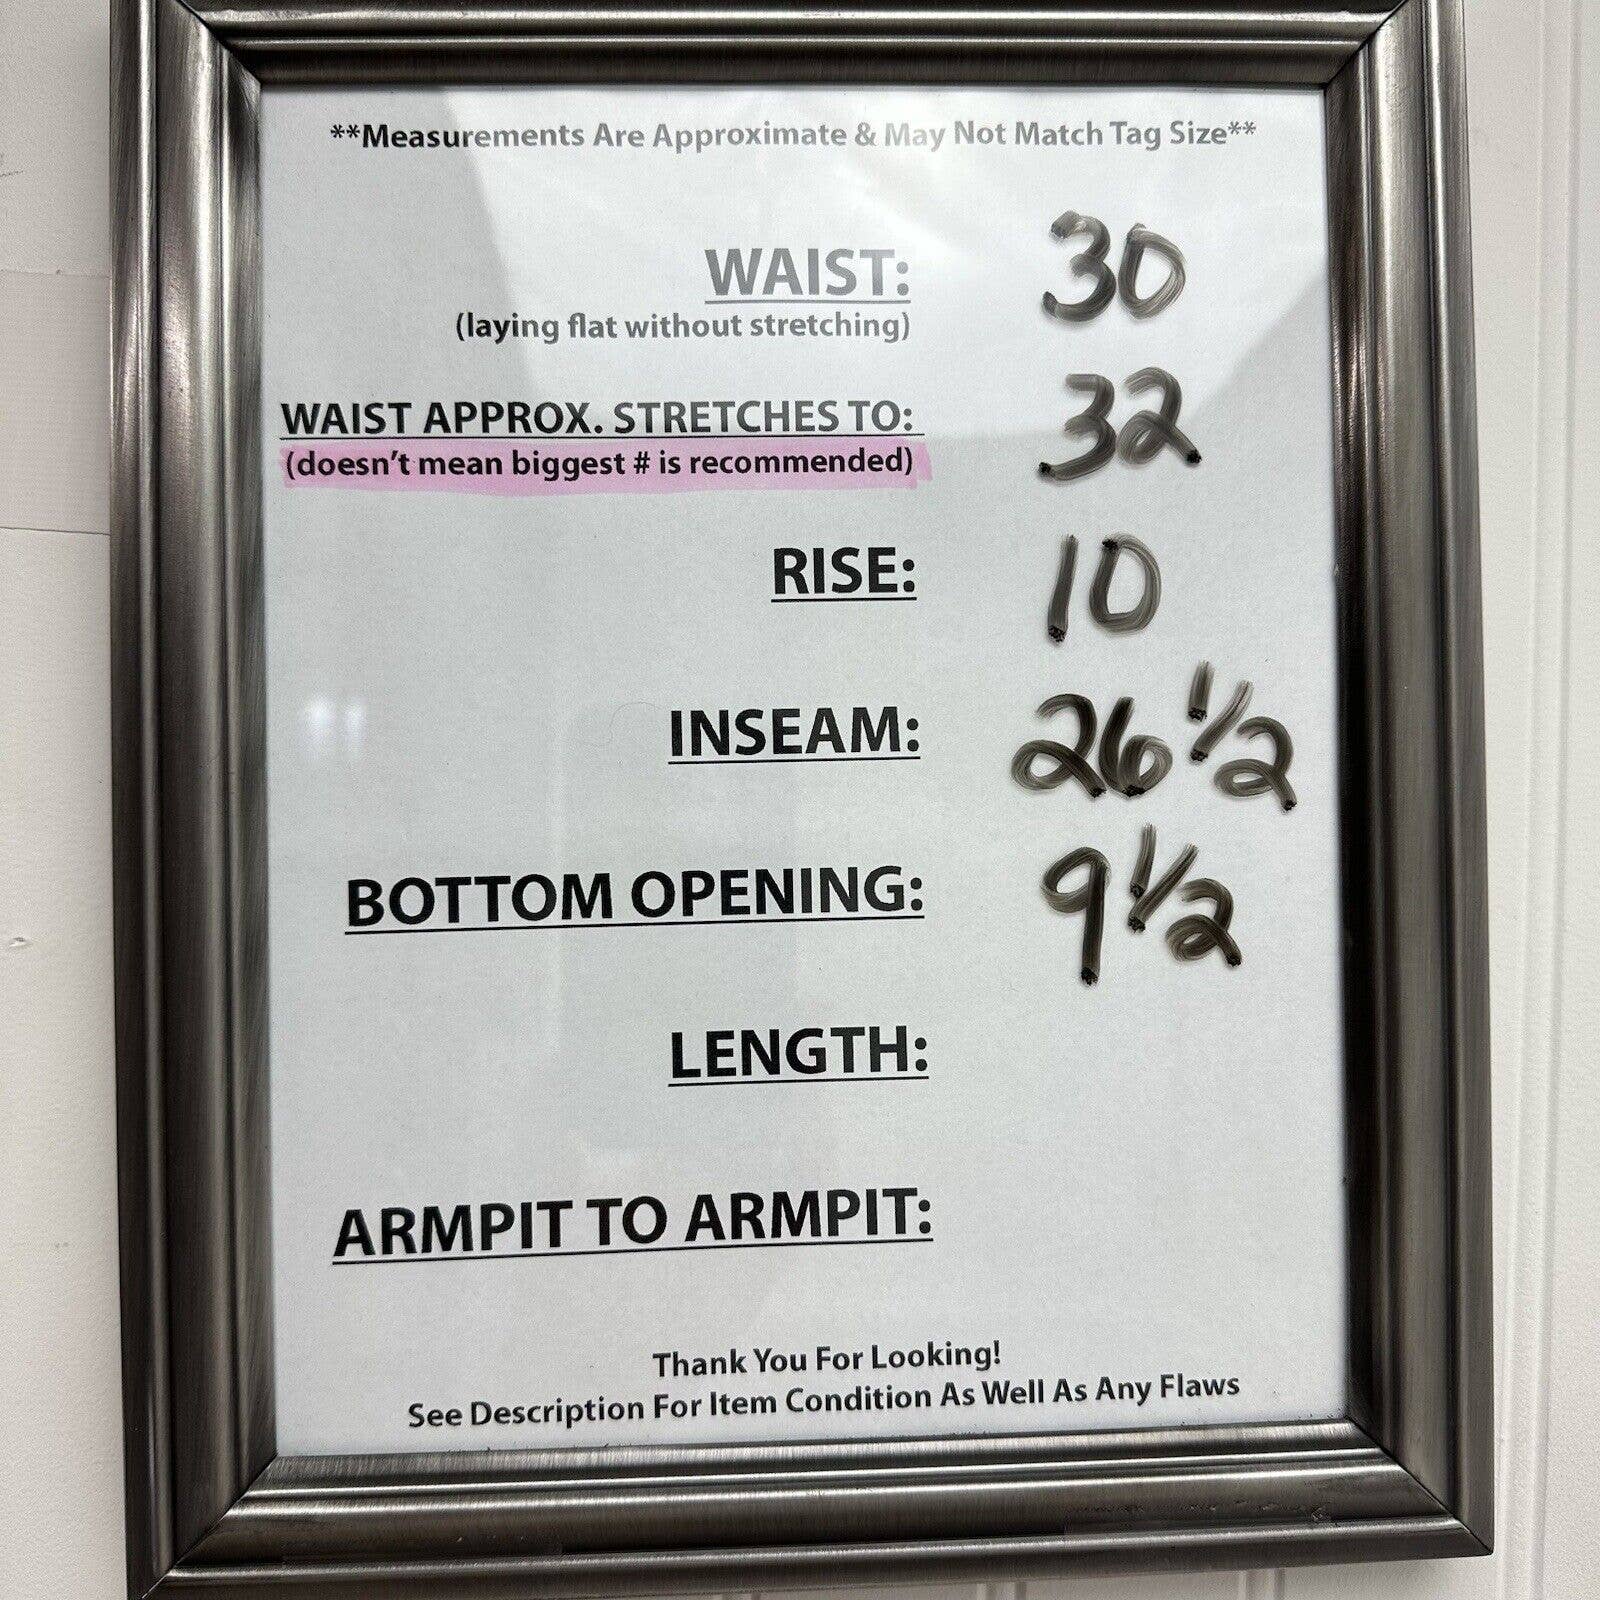 **Measurements Are Approximate & May Not Match Tag Size**
WAIST: 30
(laying flat without stretching)
WAIST APPROX. STRETCHES TO: 32
(doesn't mean biggest # is recommended)
RISE: 10
INSEAM: 26 1/2
BOTTOM OPENING: 9 1/2
LENGTH:
ARMPIT TO ARMPIT:
Thank You For Looking!
See Description For Item Condition As Well As Any Flaws